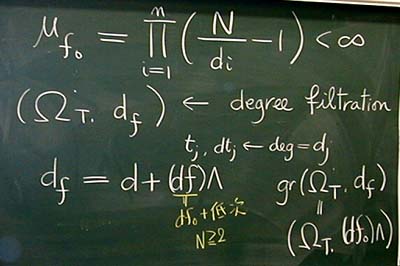 μ_{f₀} = ∏_{i=1}^{n} (N/d_i − 1) < ∞
(Ω_T^·, d_f) ← degree filtration
t_j, dt_j ← deg = d_j
d_f = d + (df)∧
df₀ + 低次
N ≥ 2
gr(Ω_T^·, d_f)
=
(Ω_T^·, (df₀)∧)